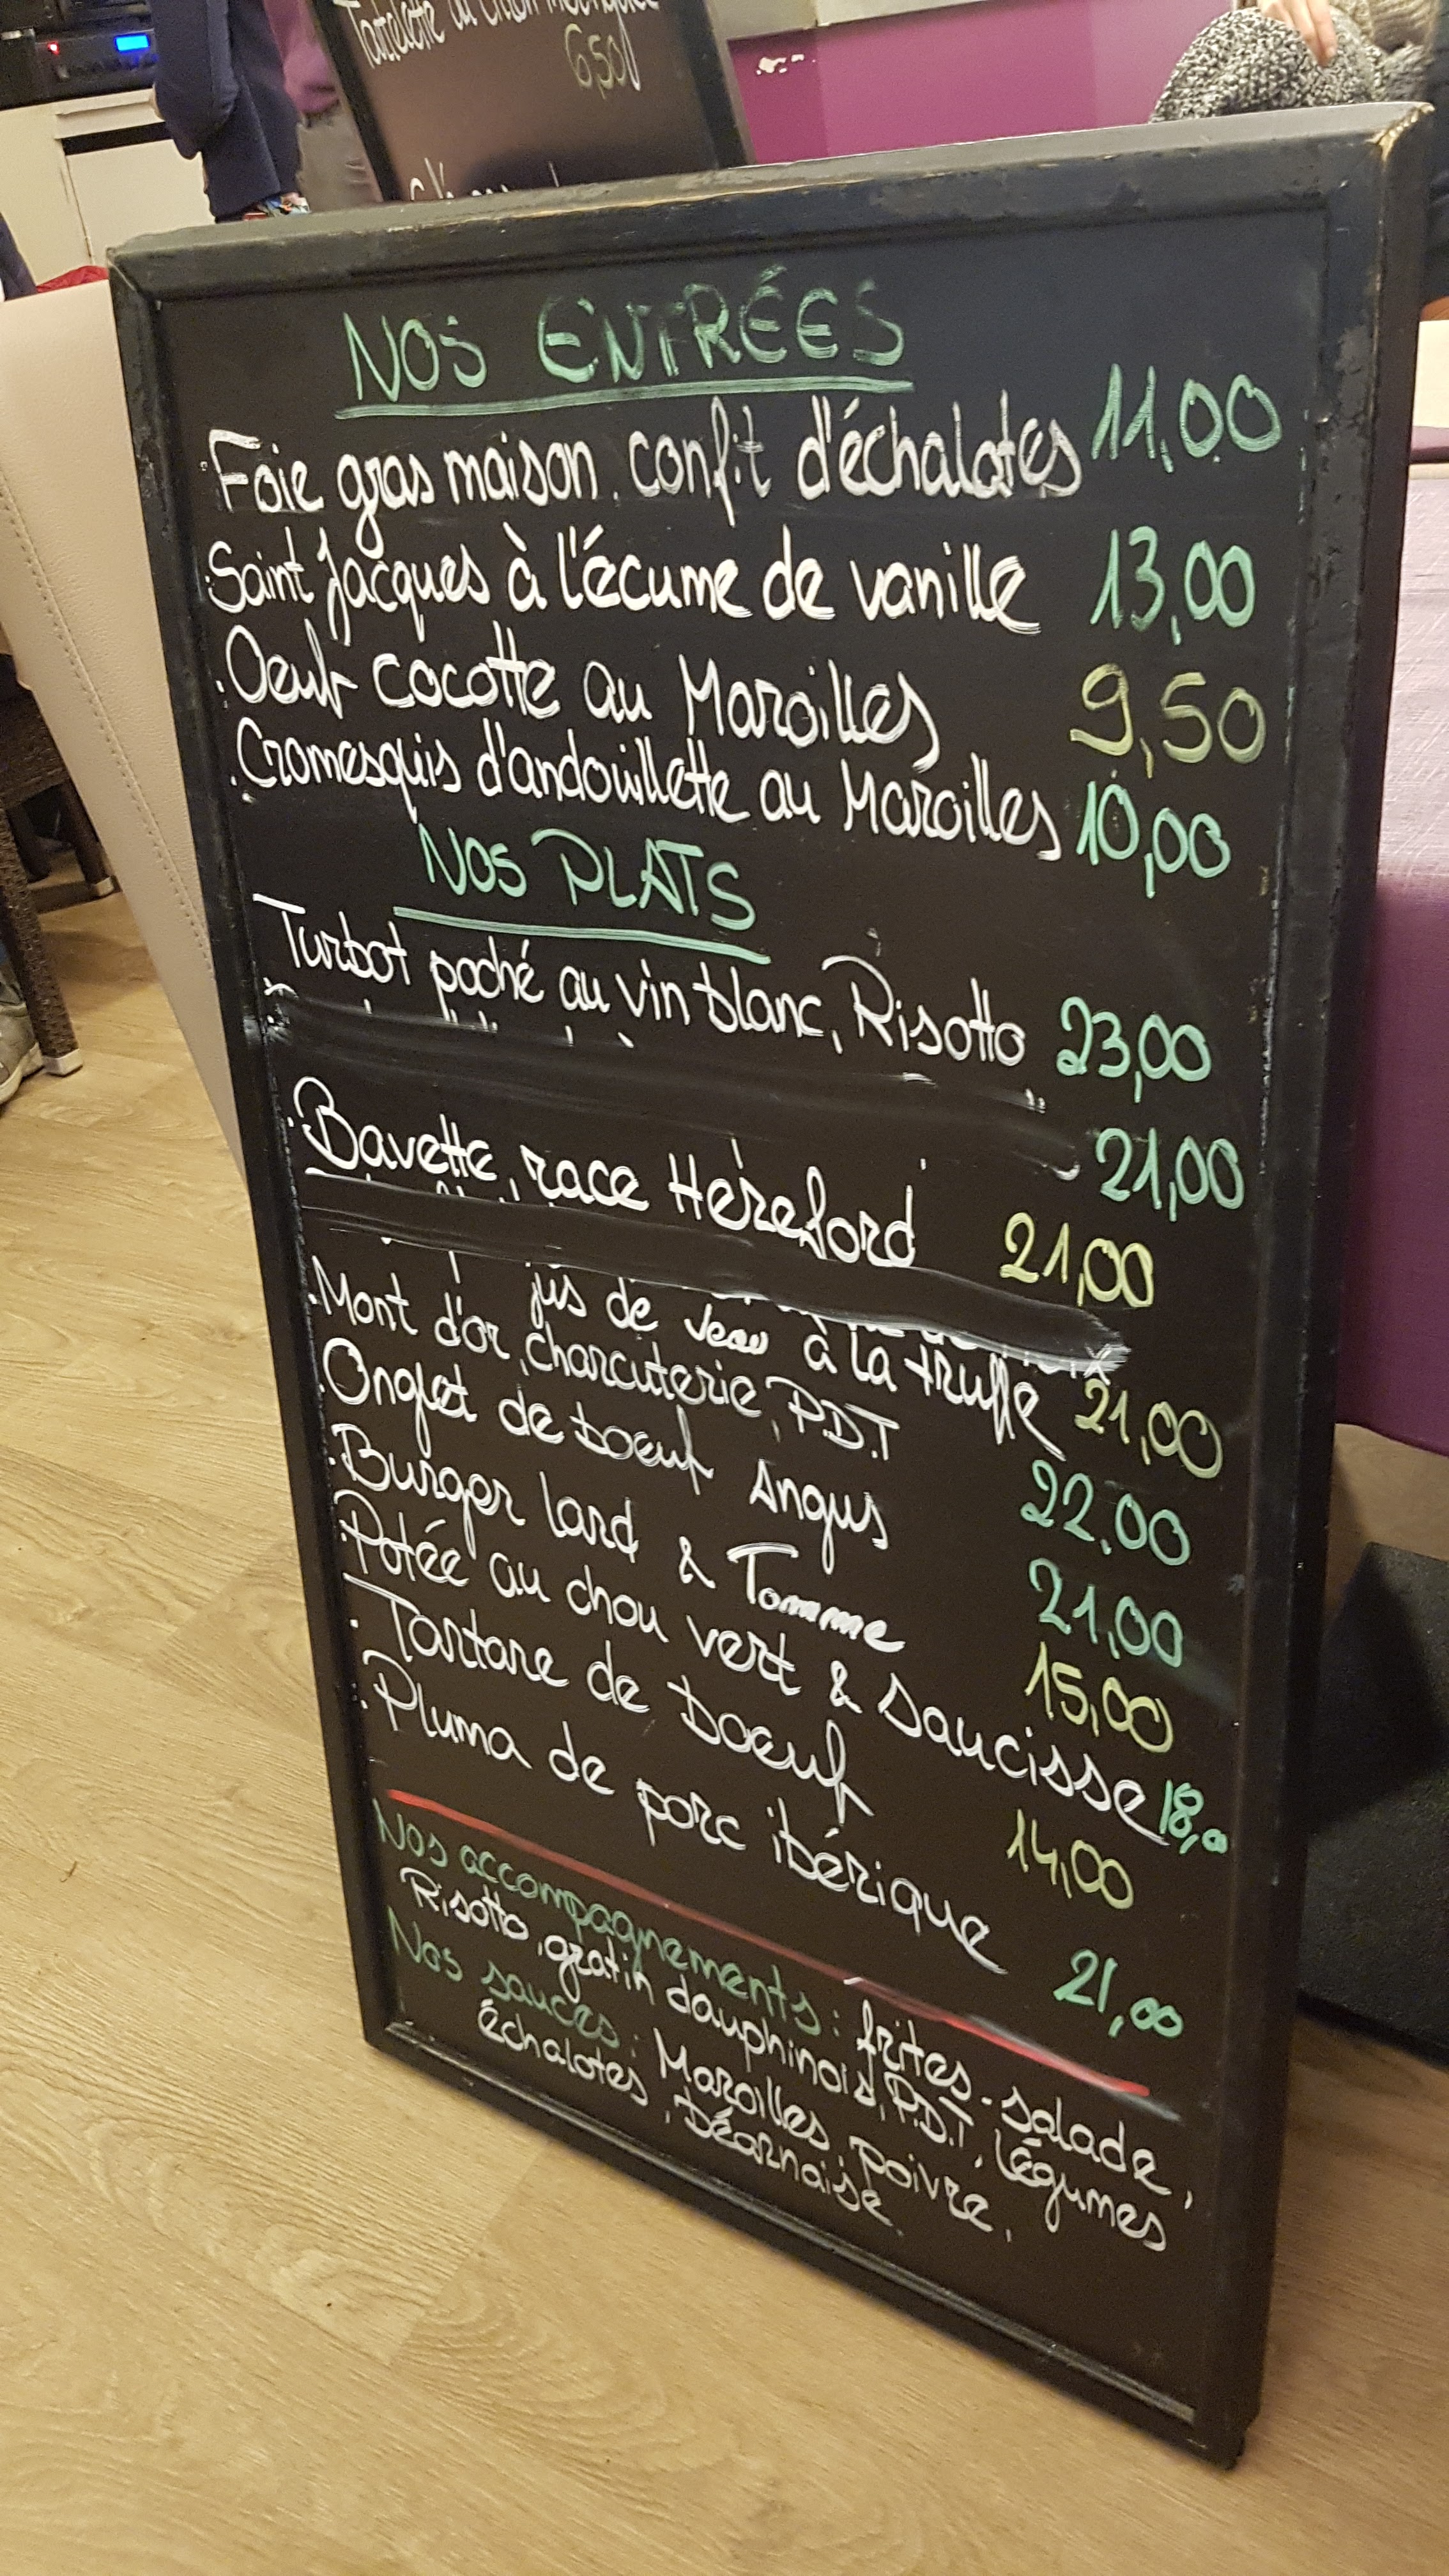 Tartelette au citron
6,50
NOS ENTRÉES
Foie gras maison. confit d'échalotes 11,00
Saint Jacques à l'écume de vanille 13,00
. Oeuf cocotte au Maroilles 9,50
. Cromesquis d'andouillette au Maroilles 10,00
NOS PLATS
Turbot poché au vin blanc, Risotto 23,00
21,00
. Bavette, race Hereford 21,00
jus de veau à la truffe 21,00
. Mont d'or, charcuterie, P.D.T 22,00
. Onglet de boeuf Angus 21,00
. Burger lard & Tomme 15,00
. Potée au chou vert & saucisse 18,00
. Tartare de boeuf 14,00
. Pluma de porc ibérique 21,00
Nos accompagnements : frites - salade,
Risotto, gratin dauphinois, P.D.T, légumes
Nos sauces : Maroilles, poivre,
échalotes, béarnaise.